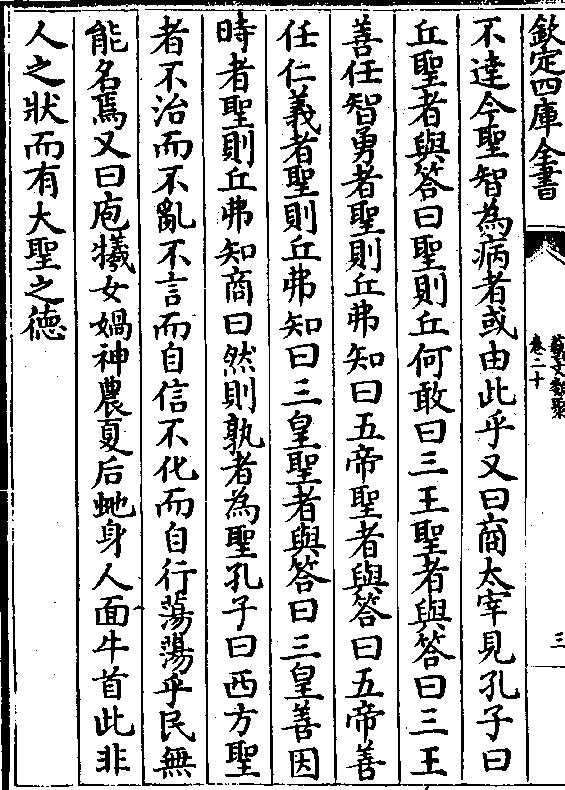 欽定四庫全書
藝文類聚
卷二十
三
不達今聖智為病者或由此乎又曰商太宰見孔子曰
丘聖者與答曰聖則丘何敢曰三王聖者與答曰三王
善任智勇者聖則丘弗知曰五帝聖者與答曰五帝善
任仁義者聖則丘弗知曰三皇聖者與答曰三皇善因
時者聖則丘弗知商曰然則孰者為聖孔子曰西方聖
者不治而不亂不言而自信不化而自行蕩蕩乎民無
能名焉又曰庖犧女媧神農夏后虵身人面牛首此非
人之狀而有大聖之德